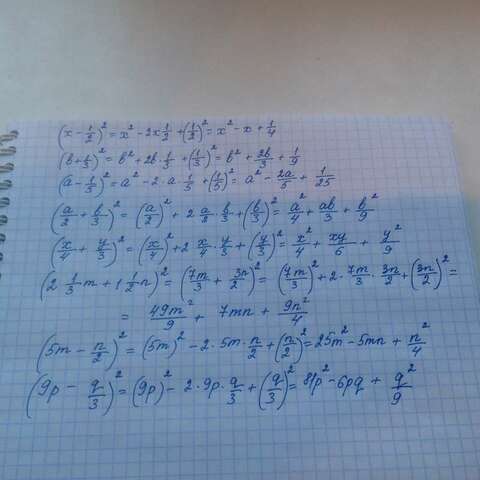 (x - 1/2)² = x² - 2x 1/2 + (1/2)² = x² - x + 1/4
(b + 1/3)² = b² + 2b · 1/3 + (1/3)² = b² + 2b/3 + 1/9
(a - 1/5)² = a² - 2 · a · 1/5 + (1/5)² = a² - 2a/5 + 1/25
(a/2 + b/3)² = (a/2)² + 2 a/2 · b/3 + (b/3)² = a²/4 + ab/3 + b²/9
(x/4 + y/3)² = (x/4)² + 2 x/4 · y/3 + (y/3)² = x²/4 + xy/6 + y²/9
(2 1/3 m + 1 1/2 n)² = (7m/3 + 3n/2)² = (7m/3)² + 2 · 7m/3 · 3n/2 + (3n/2)² =
= 49m²/9 + 7mn + 9n²/4
(5m - n/2)² = (5m)² - 2 · 5m · n/2 + (n/2)² = 25m² - 5mn + n²/4
(9p - q/3)² = (9p)² - 2 · 9p · q/3 + (q/3)² = 81p² - 6pq + q²/9